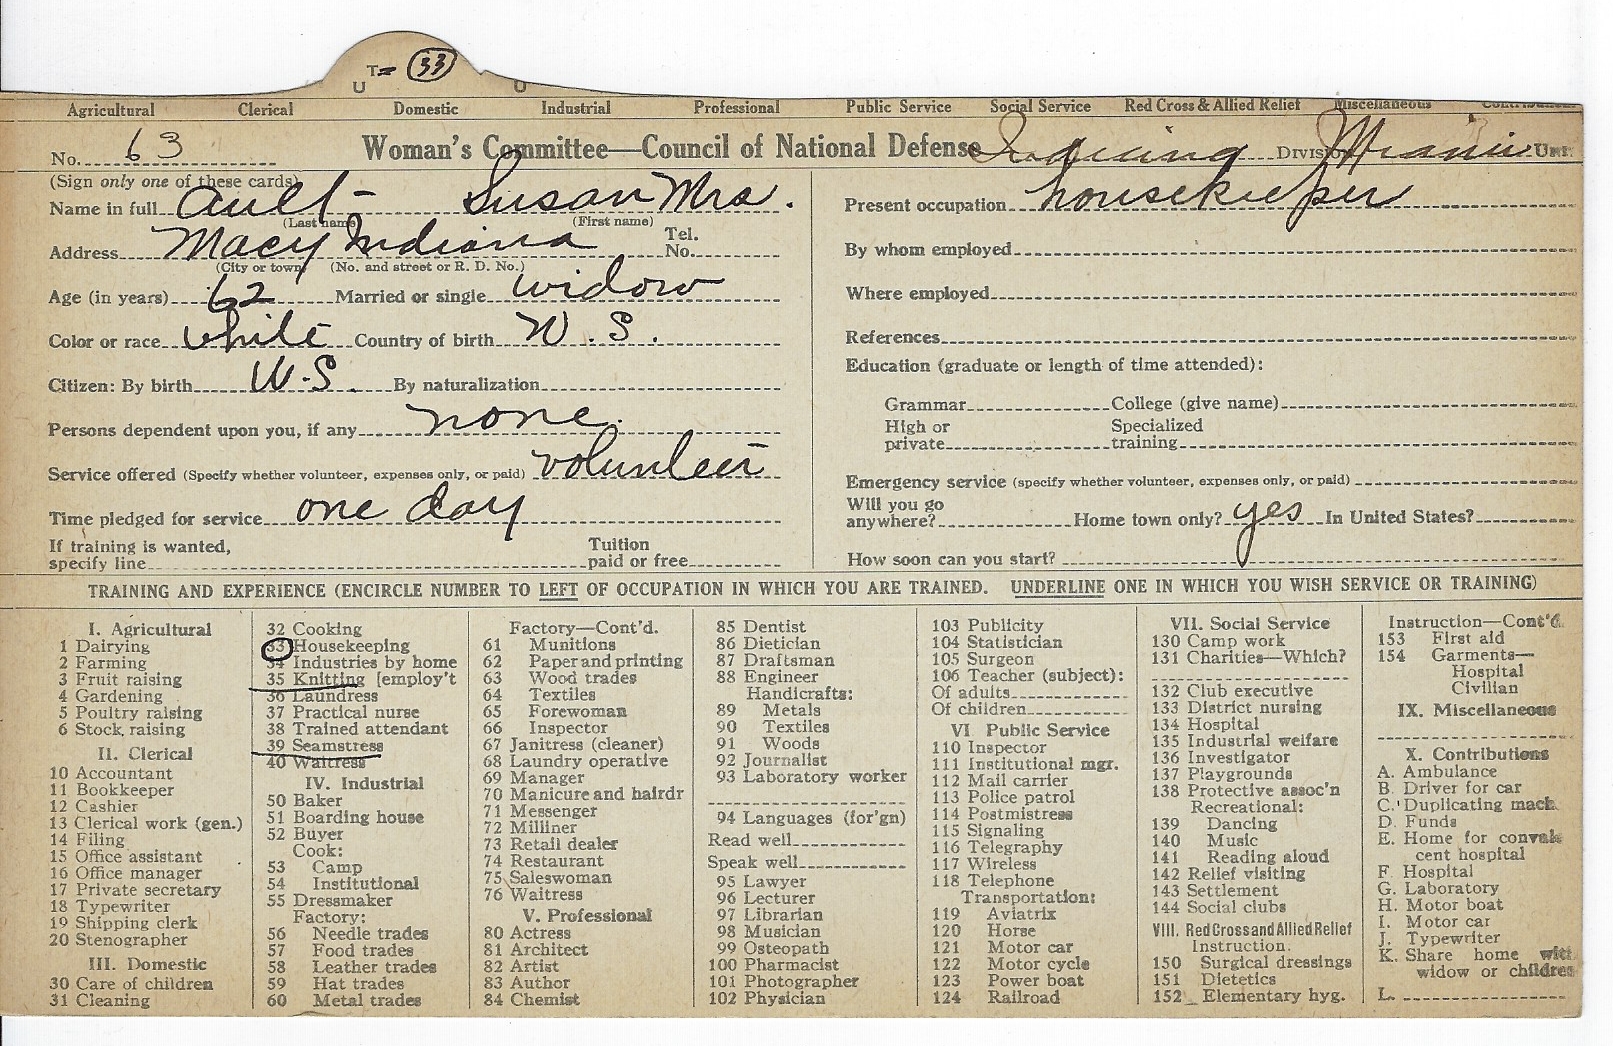 T= 33
U U
Agricultural Clerical Domestic Industrial Professional Public Service Social Service Red Cross & Allied Relief Miscellaneous Contributions
No. 63 Woman's Committee—Council of National Defense Division Miami Unit
(Sign only one of these cards)
Name in full Ault Susan Mrs.
(Last name) (First name)
Address Macy Indiana Tel. No.
(City or town) (No. and street or R. D. No.)
Age (in years) 62 Married or single widow
Color or race white Country of birth U.S.
Citizen: By birth U.S. By naturalization
Persons dependent upon you, if any none.
Service offered (Specify whether volunteer, expenses only, or paid) volunteer
Time pledged for service one day
If training is wanted, specify line Tuition paid or free
Present occupation housekeeper
By whom employed
Where employed
References
Education (graduate or length of time attended):
Grammar College (give name)
High or private Specialized training
Emergency service (specify whether volunteer, expenses only, or paid)
Will you go anywhere? Home town only? yes In United States?
How soon can you start?
TRAINING AND EXPERIENCE (ENCIRCLE NUMBER TO LEFT OF OCCUPATION IN WHICH YOU ARE TRAINED. UNDERLINE ONE IN WHICH YOU WISH SERVICE OR TRAINING)
I. Agricultural
1 Dairying
2 Farming
3 Fruit raising
4 Gardening
5 Poultry raising
6 Stock raising
II. Clerical
10 Accountant
11 Bookkeeper
12 Cashier
13 Clerical work (gen.)
14 Filing
15 Office assistant
16 Office manager
17 Private secretary
18 Typewriter
19 Shipping clerk
20 Stenographer
III. Domestic
30 Care of children
31 Cleaning
32 Cooking
33 Housekeeping
34 Industries by home
35 Knitting [employ't
36 Laundress
37 Practical nurse
38 Trained attendant
39 Seamstress
40 Waitress
IV. Industrial
50 Baker
51 Boarding house
52 Buyer
Cook:
53 Camp
54 Institutional
55 Dressmaker
Factory:
56 Needle trades
57 Food trades
58 Leather trades
59 Hat trades
60 Metal trades
Factory—Cont'd.
61 Munitions
62 Paper and printing
63 Wood trades
64 Textiles
65 Forewoman
66 Inspector
67 Janitress (cleaner)
68 Laundry operative
69 Manager
70 Manicure and hairdr
71 Messenger
72 Milliner
73 Retail dealer
74 Restaurant
75 Saleswoman
76 Waitress
V. Professional
80 Actress
81 Architect
82 Artist
83 Author
84 Chemist
85 Dentist
86 Dietician
87 Draftsman
88 Engineer
Handicrafts:
89 Metals
90 Textiles
91 Woods
92 Journalist
93 Laboratory worker
94 Languages (for'gn)
Read well
Speak well
95 Lawyer
96 Lecturer
97 Librarian
98 Musician
99 Osteopath
100 Pharmacist
101 Photographer
102 Physician
103 Publicity
104 Statistician
105 Surgeon
106 Teacher (subject):
Of adults
Of children
VI Public Service
110 Inspector
111 Institutional mgr.
112 Mail carrier
113 Police patrol
114 Postmistress
115 Signaling
116 Telegraphy
117 Wireless
118 Telephone
Transportation:
119 Aviatrix
120 Horse
121 Motor car
122 Motor cycle
123 Power boat
124 Railroad
VII. Social Service
130 Camp work
131 Charities—Which?
132 Club executive
133 District nursing
134 Hospital
135 Industrial welfare
136 Investigator
137 Playgrounds
138 Protective assoc'n
Recreational:
139 Dancing
140 Music
141 Reading aloud
142 Relief visiting
143 Settlement
144 Social clubs
VIII. Red Cross and Allied Relief
Instruction.
150 Surgical dressings
151 Dietetics
152 Elementary hyg.
Instruction—Cont'd.
153 First aid
154 Garments—
Hospital
Civilian
IX. Miscellaneous
X. Contributions
A. Ambulance
B. Driver for car
C. Duplicating mach.
D. Funds
E. Home for convales
cent hospital
F. Hospital
G. Laboratory
H. Motor boat
I. Motor car
J. Typewriter
K. Share home with
widow or children
L.